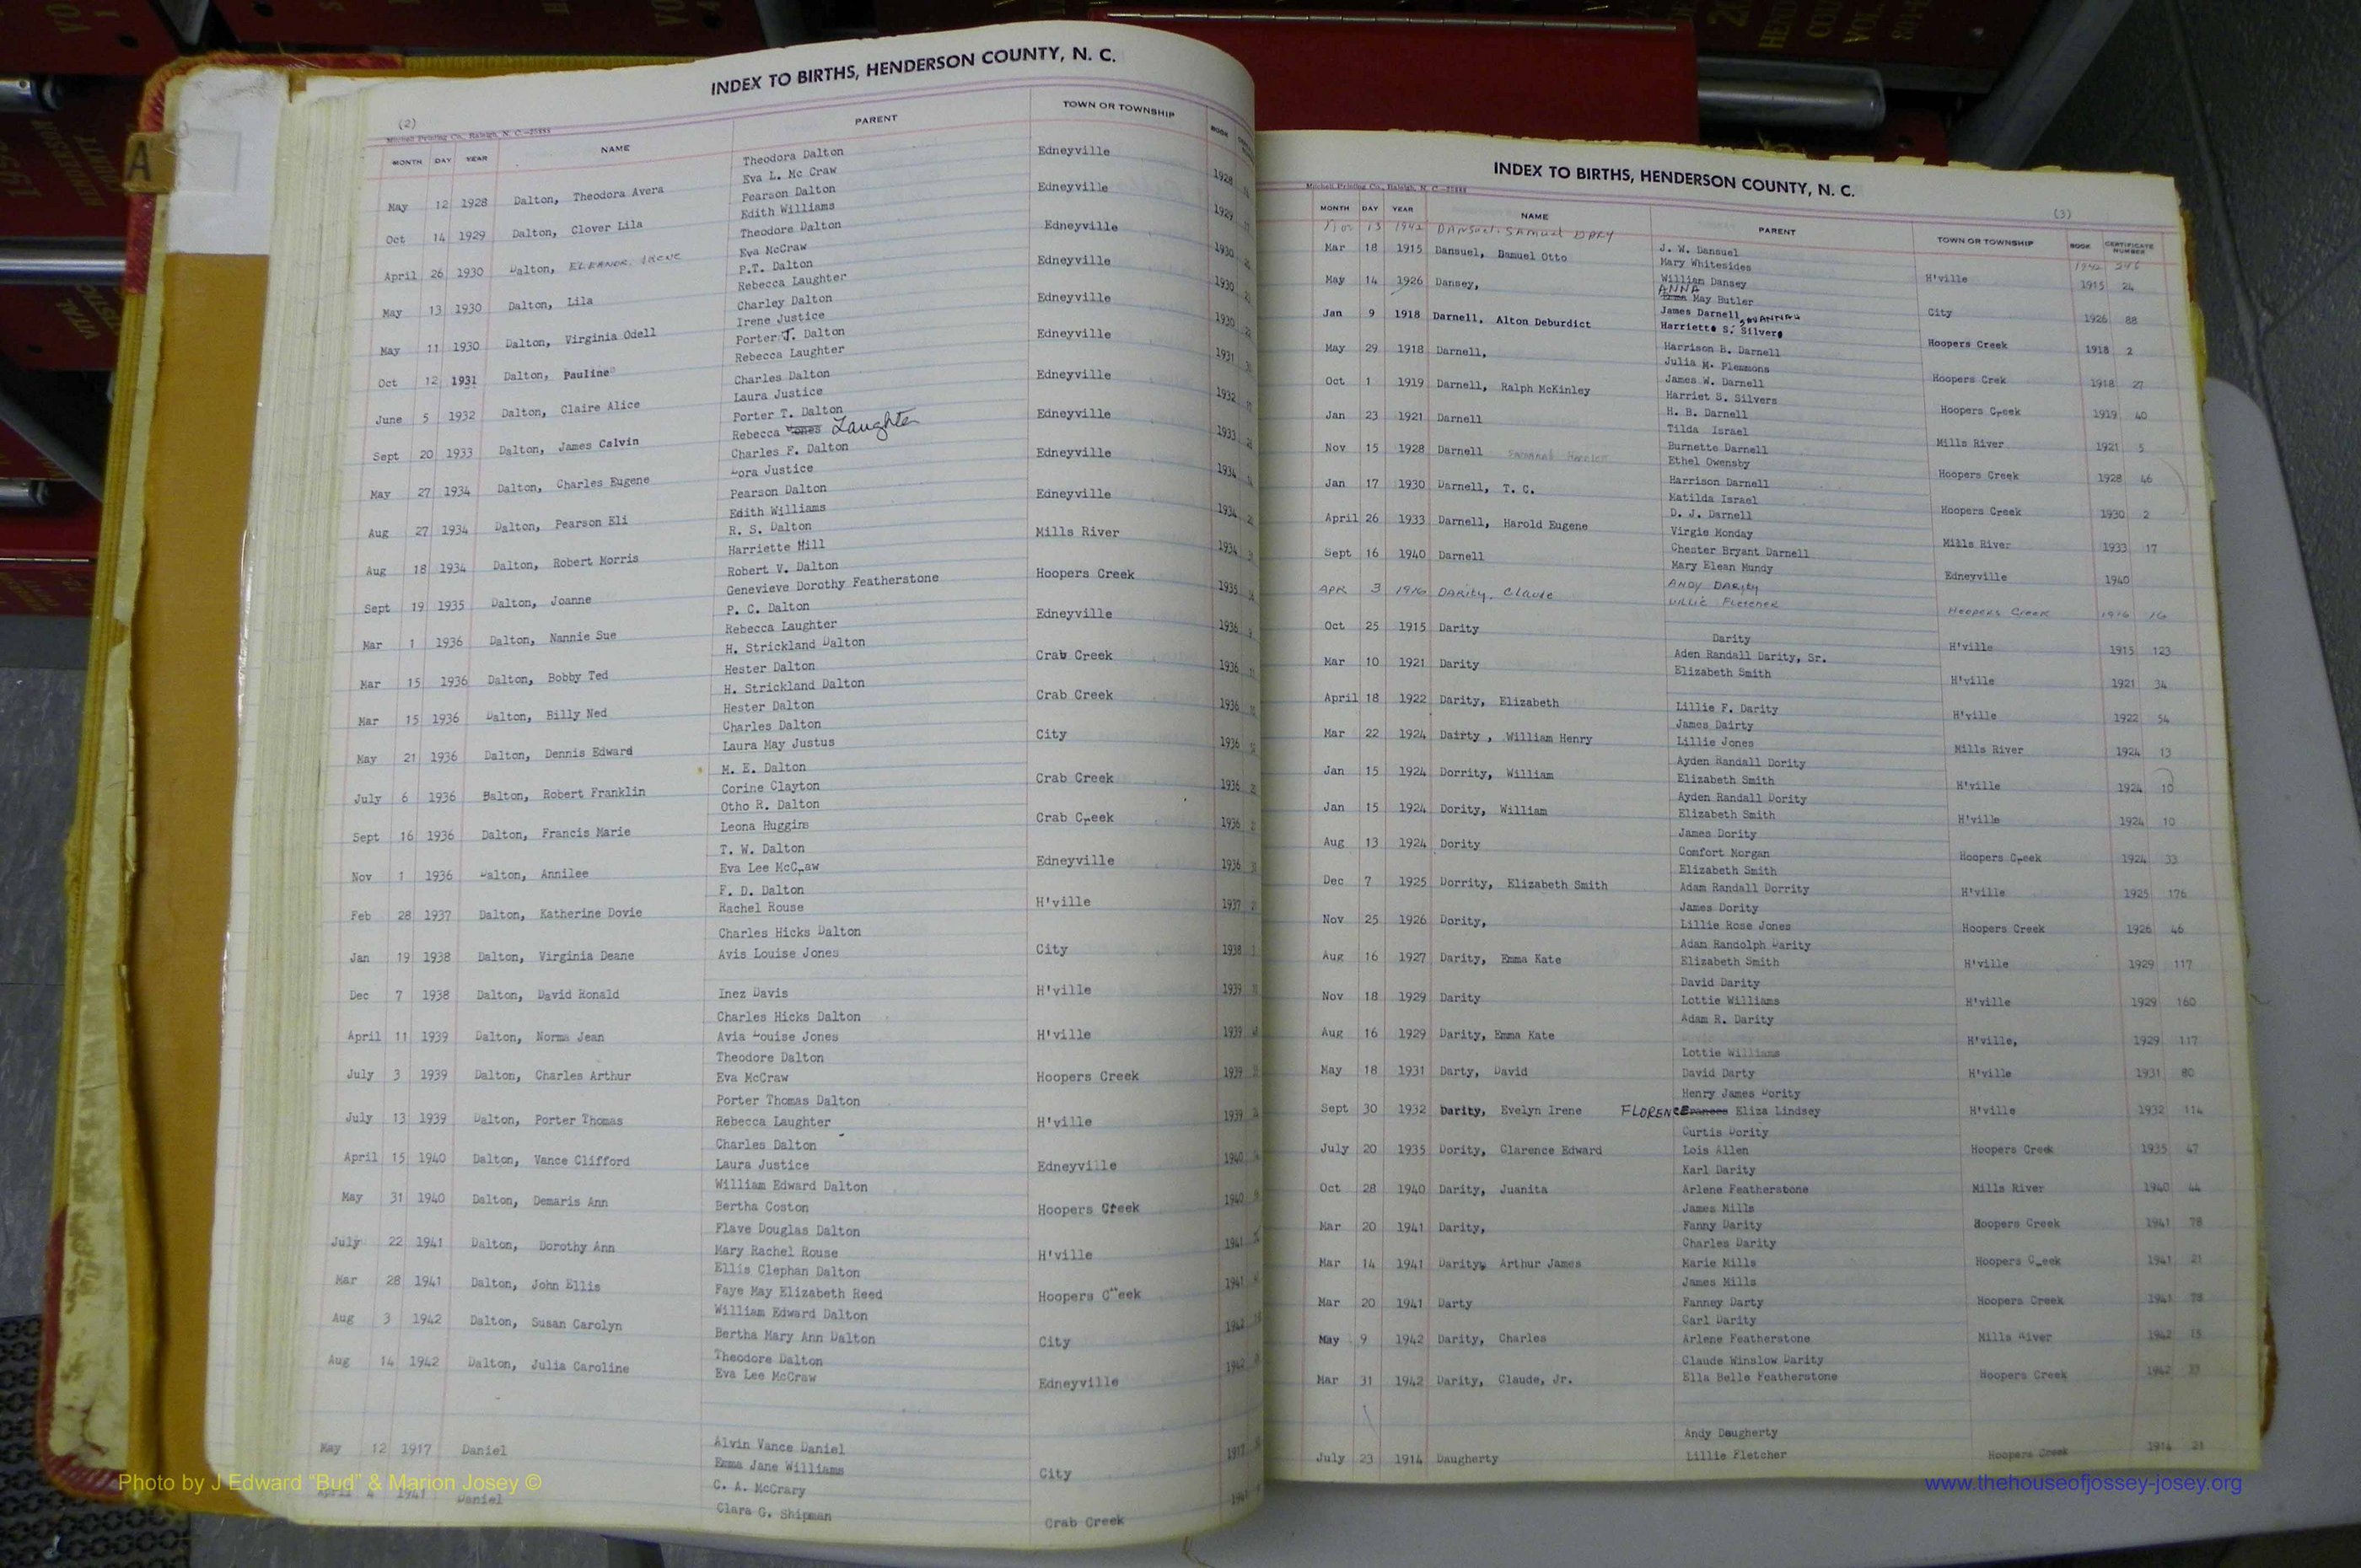 INDEX TO BIRTHS, HENDERSON COUNTY, N. C.
(2)
Mitchell Printing Co., Raleigh, N. C.
MONTH DAY YEAR NAME PARENT TOWN OR TOWNSHIP BOOK
Theodora Dalton Edneyville
May 12 1928 Dalton, Theodora Avera Eva L. Mc Craw 1928
Pearson Dalton Edneyville
Oct 14 1929 Dalton, Clover Lila Edith Williams 1929
Theodore Dalton Edneyville
April 26 1930 Dalton, ELEANOR IRENE Eva McCraw 1930
P.T. Dalton Edneyville
May 13 1930 Dalton, Lila Rebecca Laughter 1930
Charley Dalton Edneyville
May 11 1930 Dalton, Virginia Odell Irene Justice 1930
Porter J. Dalton Edneyville
Oct 12 1931 Dalton, Pauline Rebecca Laughter 1931
Charles Dalton Edneyville
June 5 1932 Dalton, Claire Alice Laura Justice 1932
Porter T. Dalton Edneyville
Sept 20 1933 Dalton, James Calvin Rebecca Jones Laughter 1933
Charles F. Dalton Edneyville
May 27 1934 Dalton, Charles Eugene Lora Justice 1934
Pearson Dalton Edneyville
Aug 27 1934 Dalton, Pearson Eli Edith Williams 1934
R. S. Dalton Mills River
Aug 18 1934 Dalton, Robert Morris Harriette Hill 1934
Robert V. Dalton Hoopers Creek
Sept 19 1935 Dalton, Joanne Genevieve Dorothy Featherstone 1935
P. C. Dalton Edneyville
Mar 1 1936 Dalton, Nannie Sue Rebecca Laughter 1936
H. Strickland Dalton Crab Creek
Mar 15 1936 Dalton, Bobby Ted Hester Dalton 1936
H. Strickland Dalton Crab Creek
Mar 15 1936 Dalton, Billy Ned Hester Dalton 1936
Charles Dalton City
May 21 1936 Dalton, Dennis Edward Laura May Justus 1936
M. E. Dalton Crab Creek
July 6 1936 Balton, Robert Franklin Corine Clayton 1936
Otho R. Dalton Crab Creek
Sept 16 1936 Dalton, Francis Marie Leona Huggins 1936
T. W. Dalton Edneyville
Nov 1 1936 Dalton, Annilee Eva Lee McCraw 1936
F. D. Dalton H'ville
Feb 28 1937 Dalton, Katherine Dovie Rachel Rouse 1937
Charles Hicks Dalton City
Jan 19 1938 Dalton, Virginia Deane Avis Louise Jones 1938
Dec 7 1938 Dalton, David Ronald Inez Davis H'ville 1939
Charles Hicks Dalton
April 11 1939 Dalton, Norma Jean Avia Louise Jones H'ville 1939
Theodore Dalton
July 3 1939 Dalton, Charles Arthur Eva McCraw Hoopers Creek 1939
Porter Thomas Dalton
July 13 1939 Dalton, Porter Thomas Rebecca Laughter H'ville 1939
Charles Dalton
April 15 1940 Dalton, Vance Clifford Laura Justice Edneyville 1940
William Edward Dalton
May 31 1940 Dalton, Demaris Ann Bertha Coston Hoopers Creek 1940
Flave Douglas Dalton
July 22 1941 Dalton, Dorothy Ann Mary Rachel Rouse H'ville 1941
Ellis Clephan Dalton
Mar 28 1941 Dalton, John Ellis Faye May Elizabeth Reed Hoopers Creek 1941
William Edward Dalton
Aug 3 1942 Dalton, Susan Carolyn Bertha Mary Ann Dalton City 1942
Theodore Dalton
Aug 14 1942 Dalton, Julia Caroline Eva Lee McCraw Edneyville 1942
May 12 1917 Daniel Alvin Vance Daniel 1917
Emma Jane Williams City
April 4 1941 Daniel C. A. McCrary 1941
Clara G. Shipman Crab Creek
INDEX TO BIRTHS, HENDERSON COUNTY, N. C.
(3)
Mitchell Printing Co., Raleigh, N. C.
MONTH DAY YEAR NAME PARENT TOWN OR TOWNSHIP BOOK CERTIFICATE NUMBER
Nov 13 1942 DANSUEL, SAMUEL DARY 1942
Mar 18 1915 Dansuel, Bamuel Otto J. W. Dansuel H'ville 1915 24
Mary Whitesides
May 14 1926 Dansey, William Dansey City 1926 88
ANNA May Butler
Jan 9 1918 Darnell, Alton Deburdict James Darnell Hoopers Creek 1918 2
Harriette S. Silvers
May 29 1918 Darnell, Harrison B. Darnell Hoopers Crek 1918 27
Julia M. Plemmons
Oct 1 1919 Darnell, Ralph McKinley James W. Darnell Hoopers Creek 1919 40
Harriet S. Silvers
Jan 23 1921 Darnell H. B. Darnell Mills River 1921 5
Tilda Israel
Nov 15 1928 Darnell Burnette Darnell Hoopers Creek 1928 46
Ethel Owensby
Jan 17 1930 Darnell, T. C. Harrison Darnell Hoopers Creek 1930 2
Matilda Israel
April 26 1933 Darnell, Harold Eugene D. J. Darnell Mills River 1933 17
Virgie Monday
Sept 16 1940 Darnell Chester Bryant Darnell Edneyville 1940
Mary Elean Mundy
APR 3 1916 DARITY, Claude ANDY DARITY Hoopers Creek 1916 16
LILLIE Fletcher
Oct 25 1915 Darity Darity H'ville 1915 123
Mar 10 1921 Darity Aden Randall Darity, Sr. H'ville 1921 34
Elizabeth Smith
April 18 1922 Darity, Elizabeth Lillie F. Darity H'ville 1922 54
James Dairty
Mar 22 1924 Dairty , William Henry Lillie Jones Mills River 1924 13
Ayden Randall Dority
Jan 15 1924 Dorrity, William Elizabeth Smith H'ville 1924 10
Ayden Randall Dority
Jan 15 1924 Dority, William Elizabeth Smith H'ville 1924 10
James Dority
Aug 13 1924 Dority Comfort Morgan Hoopers Creek 1924 33
Elizabeth Smith
Dec 7 1925 Dorrity, Elizabeth Smith Adam Randall Dorrity H'ville 1925 176
James Dority
Nov 25 1926 Dority, Lillie Rose Jones Hoopers Creek 1926 46
Adam Randolph Darity
Aug 16 1927 Darity, Emma Kate Elizabeth Smith H'ville 1929 117
David Darity
Nov 18 1929 Darity Lottie Williams H'ville 1929 160
Adam R. Darity
Aug 16 1929 Darity, Emma Kate H'ville, 1929 117
Lottie Williams
May 18 1931 Darty, David David Darty H'ville 1931 80
Henry James Dority
Sept 30 1932 Darity, Evelyn Irene FLORENCE Frances Eliza Lindsey H'ville 1932 114
Curtis Dority
July 20 1935 Dority, Clarence Edward Lois Allen Hoopers Creek 1935 47
Karl Darity
Oct 28 1940 Darity, Juanita Arlene Featherstone Mills River 1940 44
James Mills
Mar 20 1941 Darity, Fanny Darity Hoopers Creek 1941 78
Charles Darity
Mar 14 1941 Darity, Arthur James Marie Mills Hoopers Creek 1941 21
James Mills
Mar 20 1941 Darty Fanney Darty Hoopers Creek 1941 78
Carl Darity
May 9 1942 Darity, Charles Arlene Featherstone Mills River 1942 15
Claude Winslow Darity
Mar 31 1942 Darity, Claude, Jr. Ella Belle Featherstone Hoopers Creek 1942 23
Andy Daugherty
July 23 1914 Daugherty Lillie Fletcher Hoopers Creek 1914 21
Photo by J Edward “Bud” & Marion Josey ©
www.thehouseofjossey-josey.org